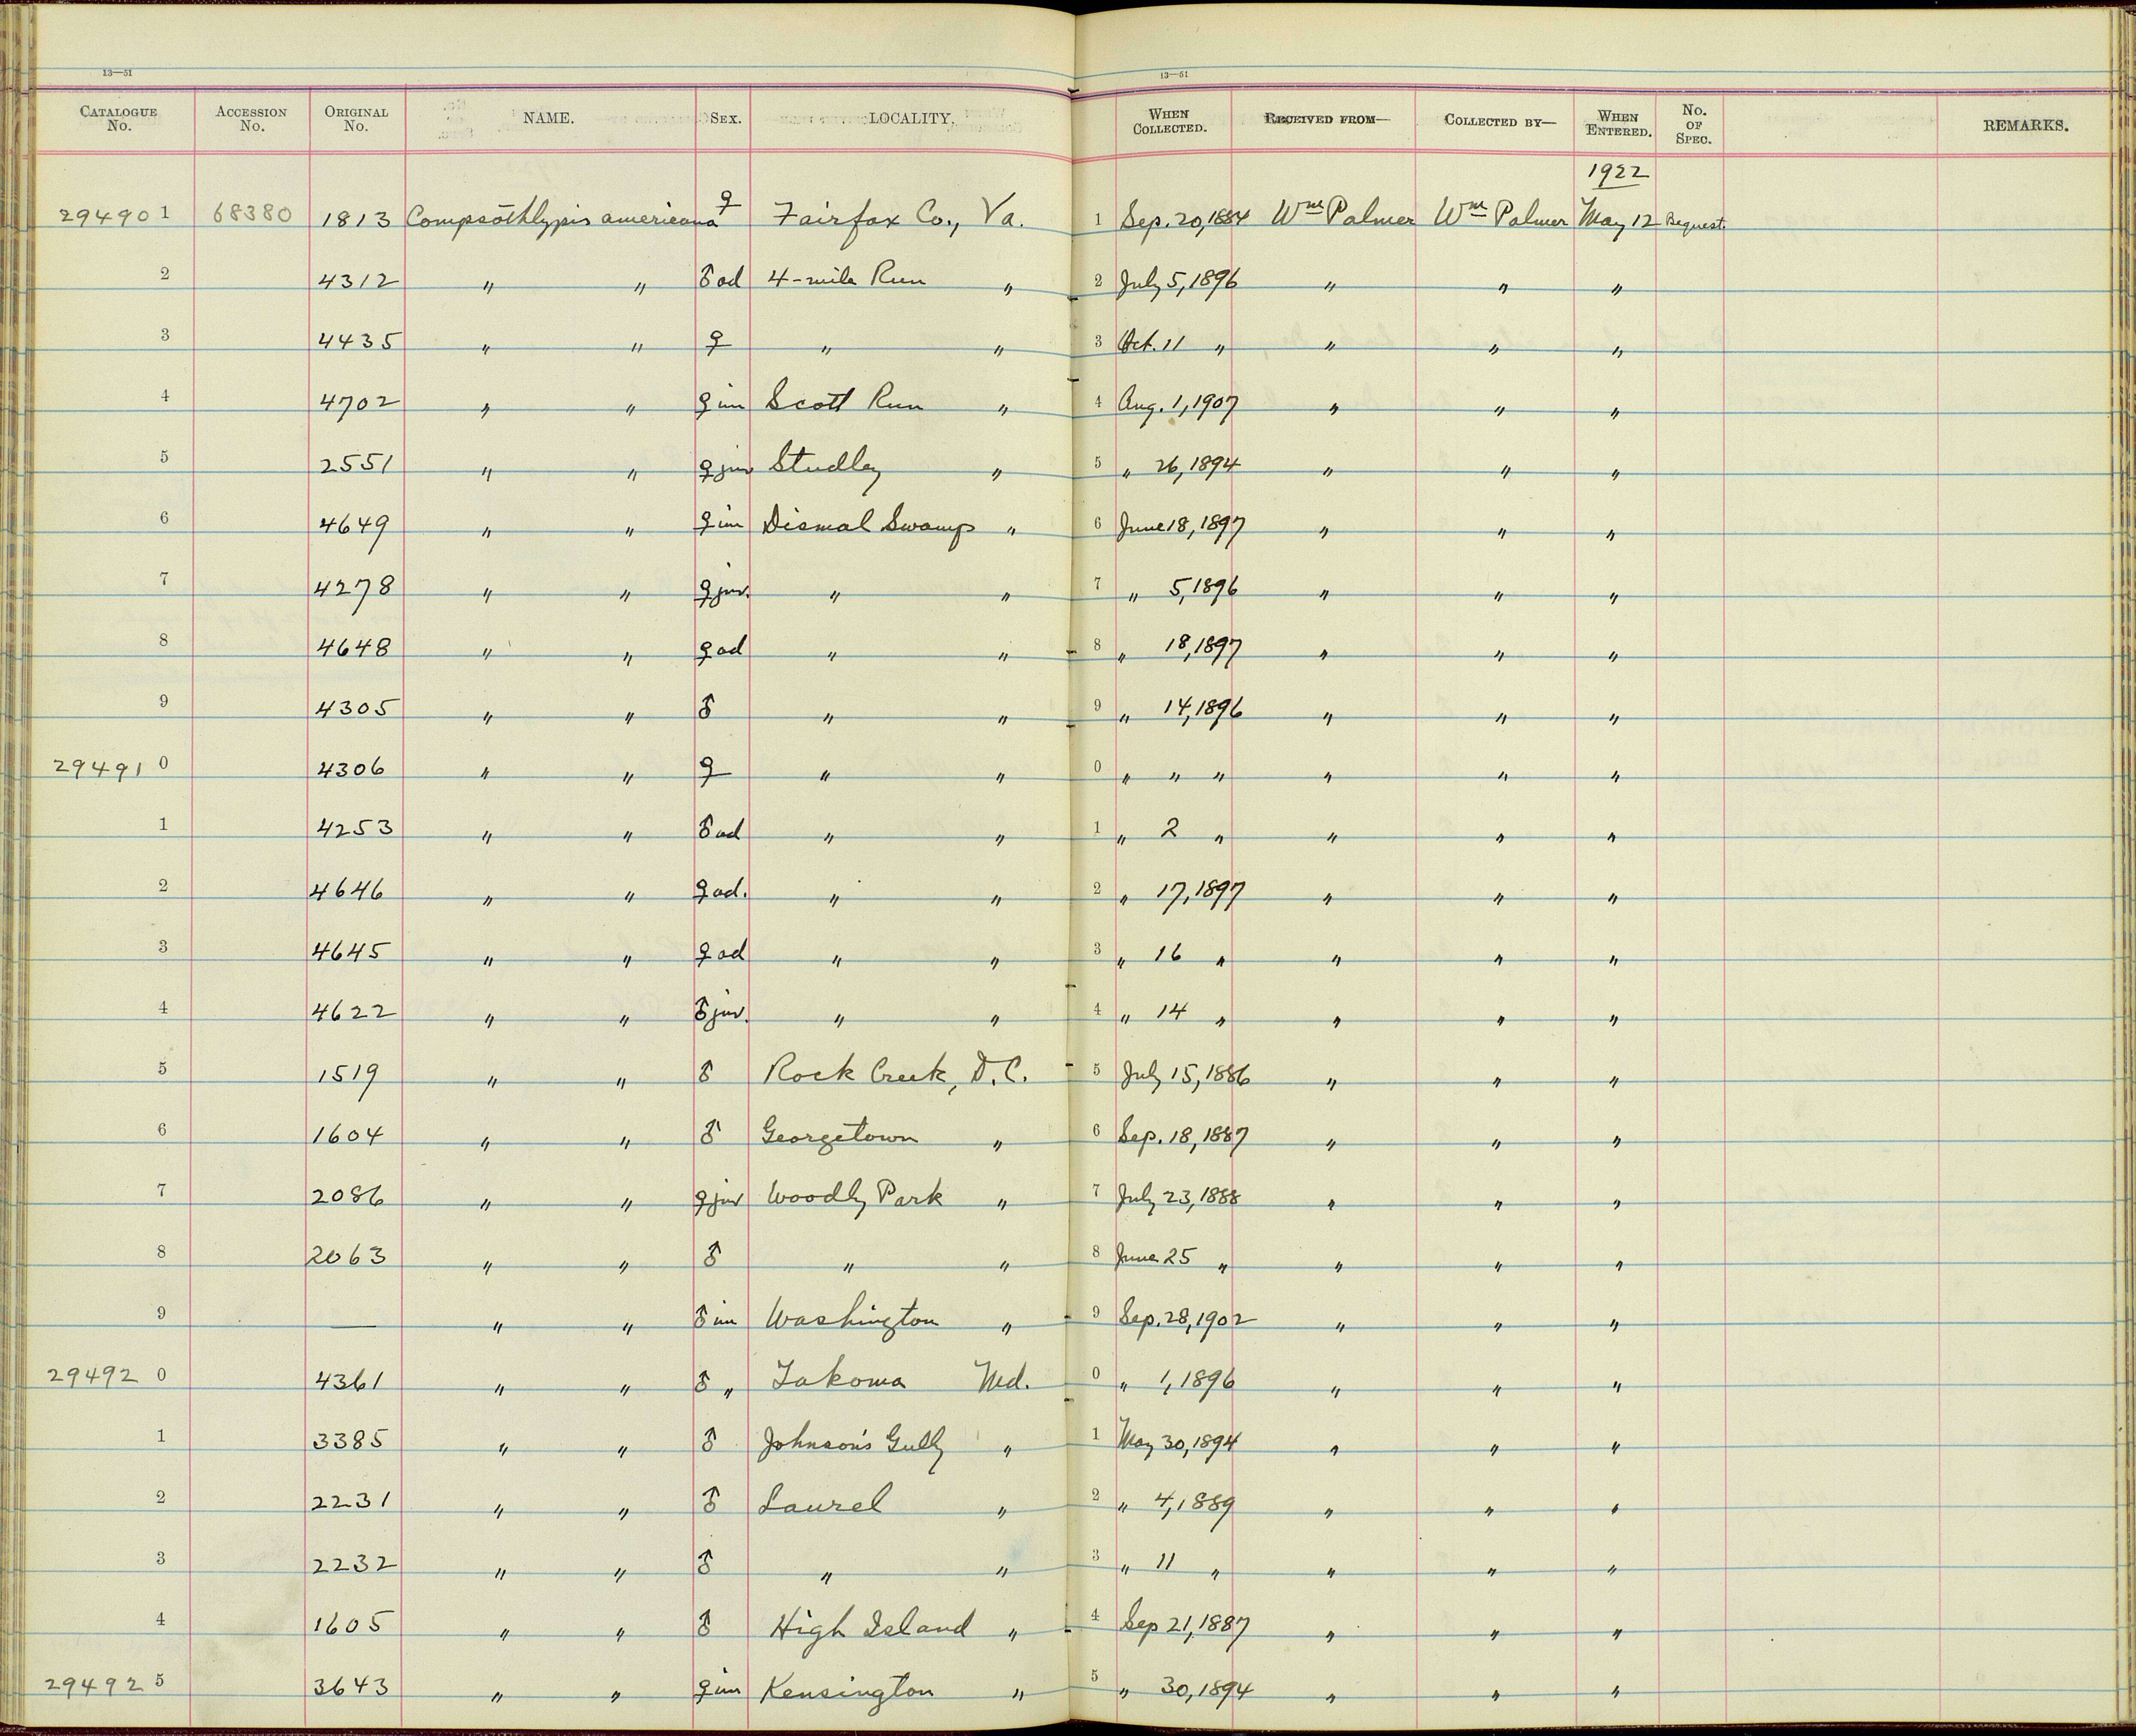 13—51 13—51
CATALOGUE No. ACCESSION No. ORIGINAL No. NAME. SEX. LOCALITY. WHEN COLLECTED. RECEIVED FROM— COLLECTED BY— WHEN ENTERED. No. OF SPEC. REMARKS.
1922
29490 1 68380 1813 Compsothlypis americana ♀ Fairfax Co., Va. 1 Sep. 20, 1884 Wm Palmer Wm Palmer May 12 Bequest.
2 4312 " " ♂ ad 4-mile Run " 2 July 5, 1896 " " "
3 4435 " " ♀ " " 3 Oct. 11 " " " "
4 4702 " " ♀ im Scott Run " 4 Aug. 1, 1907 " " "
5 2551 " " ♀ juv Studley " 5 " 26, 1894 " " "
6 4649 " " ♀ im Dismal Swamp " 6 June 18, 1897 " " "
7 4278 " " ♀ juv. " " 7 " 5, 1896 " " "
8 4648 " " ♀ ad " " 8 " 18, 1897 " " "
9 4305 " " ♂ " " 9 " 14, 1896 " " "
29491 0 4306 " " ♀ " " 0 " " " " " "
1 4253 " " ♂ ad " " 1 " 2 " " " "
2 4646 " " ♀ ad. " " 2 " 17, 1897 " " "
3 4645 " " ♀ ad " " 3 " 16 " " " "
4 4622 " " ♂ juv. " " 4 " 14 " " " "
5 1519 " " ♂ Rock Creek, D.C. 5 July 15, 1886 " " "
6 1604 " " ♂ Georgetown " 6 Sep. 18, 1887 " " "
7 2086 " " ♀ juv Woodly Park " 7 July 23, 1888 " " "
8 2063 " " ♂ " " 8 June 25 " " " "
9 — " " ♂ im Washington " 9 Sep. 28, 1902 " " "
29492 0 4361 " " ♂ " Takoma Md. 0 " 1, 1896 " " "
1 3385 " " ♂ Johnson's Gully " 1 May 30, 1894 " " "
2 2231 " " ♂ Laurel " 2 " 4, 1889 " " "
3 2232 " " ♂ " " 3 " 11 " " " "
4 1605 " " ♂ High Island " 4 Sep 21, 1887 " " "
29492 5 3643 " " ♀ im Kensington " 5 " 30, 1894 " " "